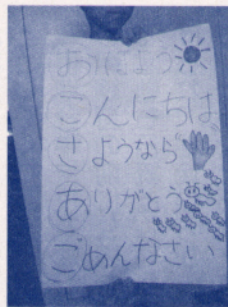 おはよう
こんにちは
さようなら
ありがとう
ごめんなさい